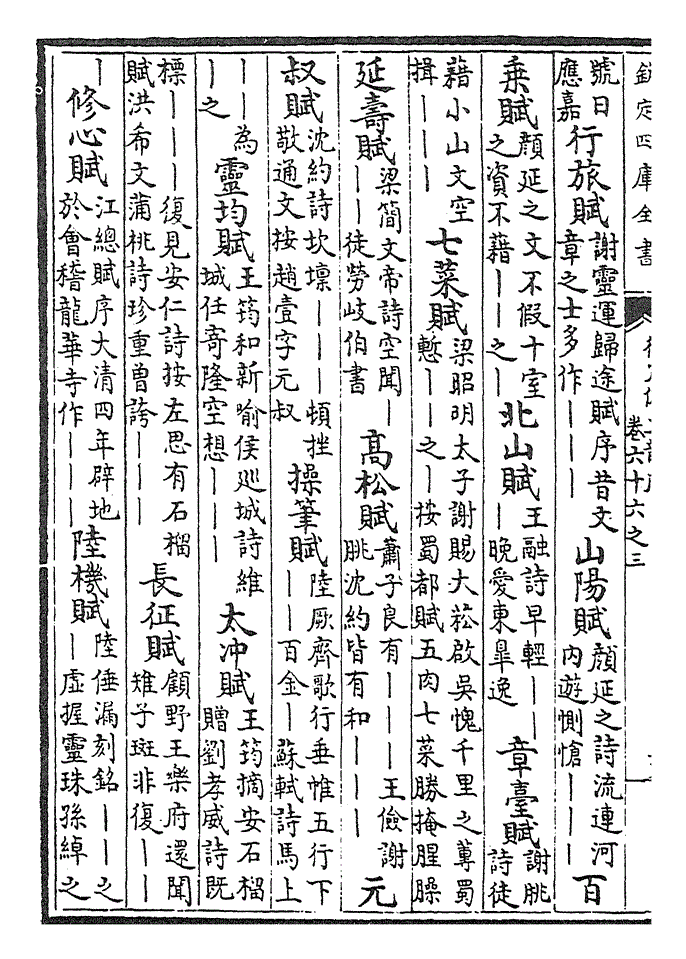 欽定四庫全書
卷六十六之三
號曰應嘉行旅賦謝靈運歸途賦序昔文章之士多作｜｜｜山陽賦顔延之詩流連河内遊惻愴｜｜｜百
乗賦顔延之文不假十室之資不藉｜｜之｜北山賦王融詩早輕｜｜｜晩愛東臯逸章臺賦謝朓詩徒
藉小山文空揖｜｜｜七菜賦梁昭明太子謝賜大菘啟吳愧千里之蓴蜀慙｜｜之｜按蜀都賦五肉七菜勝掩腥臊
延壽賦梁簡文帝詩空聞｜｜｜徒勞岐伯書髙松賦蕭子良有｜｜｜王儉謝朓沈約皆有和｜｜｜元
叔賦沈約詩坎壈｜｜｜頓挫敬通文按趙壹字元叔操筆賦陸厥齊歌行垂帷五行下｜｜百金｜蘇軾詩馬上
｜｜為｜之靈均賦王筠和新喻侯廵城詩維城任寄隆空想｜｜｜太冲賦王筠摘安石榴贈劉孝威詩既
標｜｜｜復見安仁詩按左思有石榴賦洪希文蒲桃詩珍重曽誇｜｜｜長征賦顧野王樂府還聞雉子斑非復｜｜
｜修心賦江總賦序大清四年辟地於會稽龍華寺作｜｜｜陸機賦陸倕漏刻銘｜｜之｜虚握靈珠孫綽之